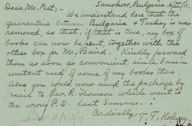 Samokov, Bulgaria
Dear Mr. Peet:-
We understand here that the
quarantine between Bulgaria & Turkey is now
removed, so that, if that is true, my box of
books can now be sent, together with the
other box on Mr. Baird. Kindly forward
them as soon as convenient, since I am in
constant need of some of my books there.
Also you could now send the package by
mail to Rev. R. Thomson, which went to
the wrong P.O. last Summer.
Cordially,